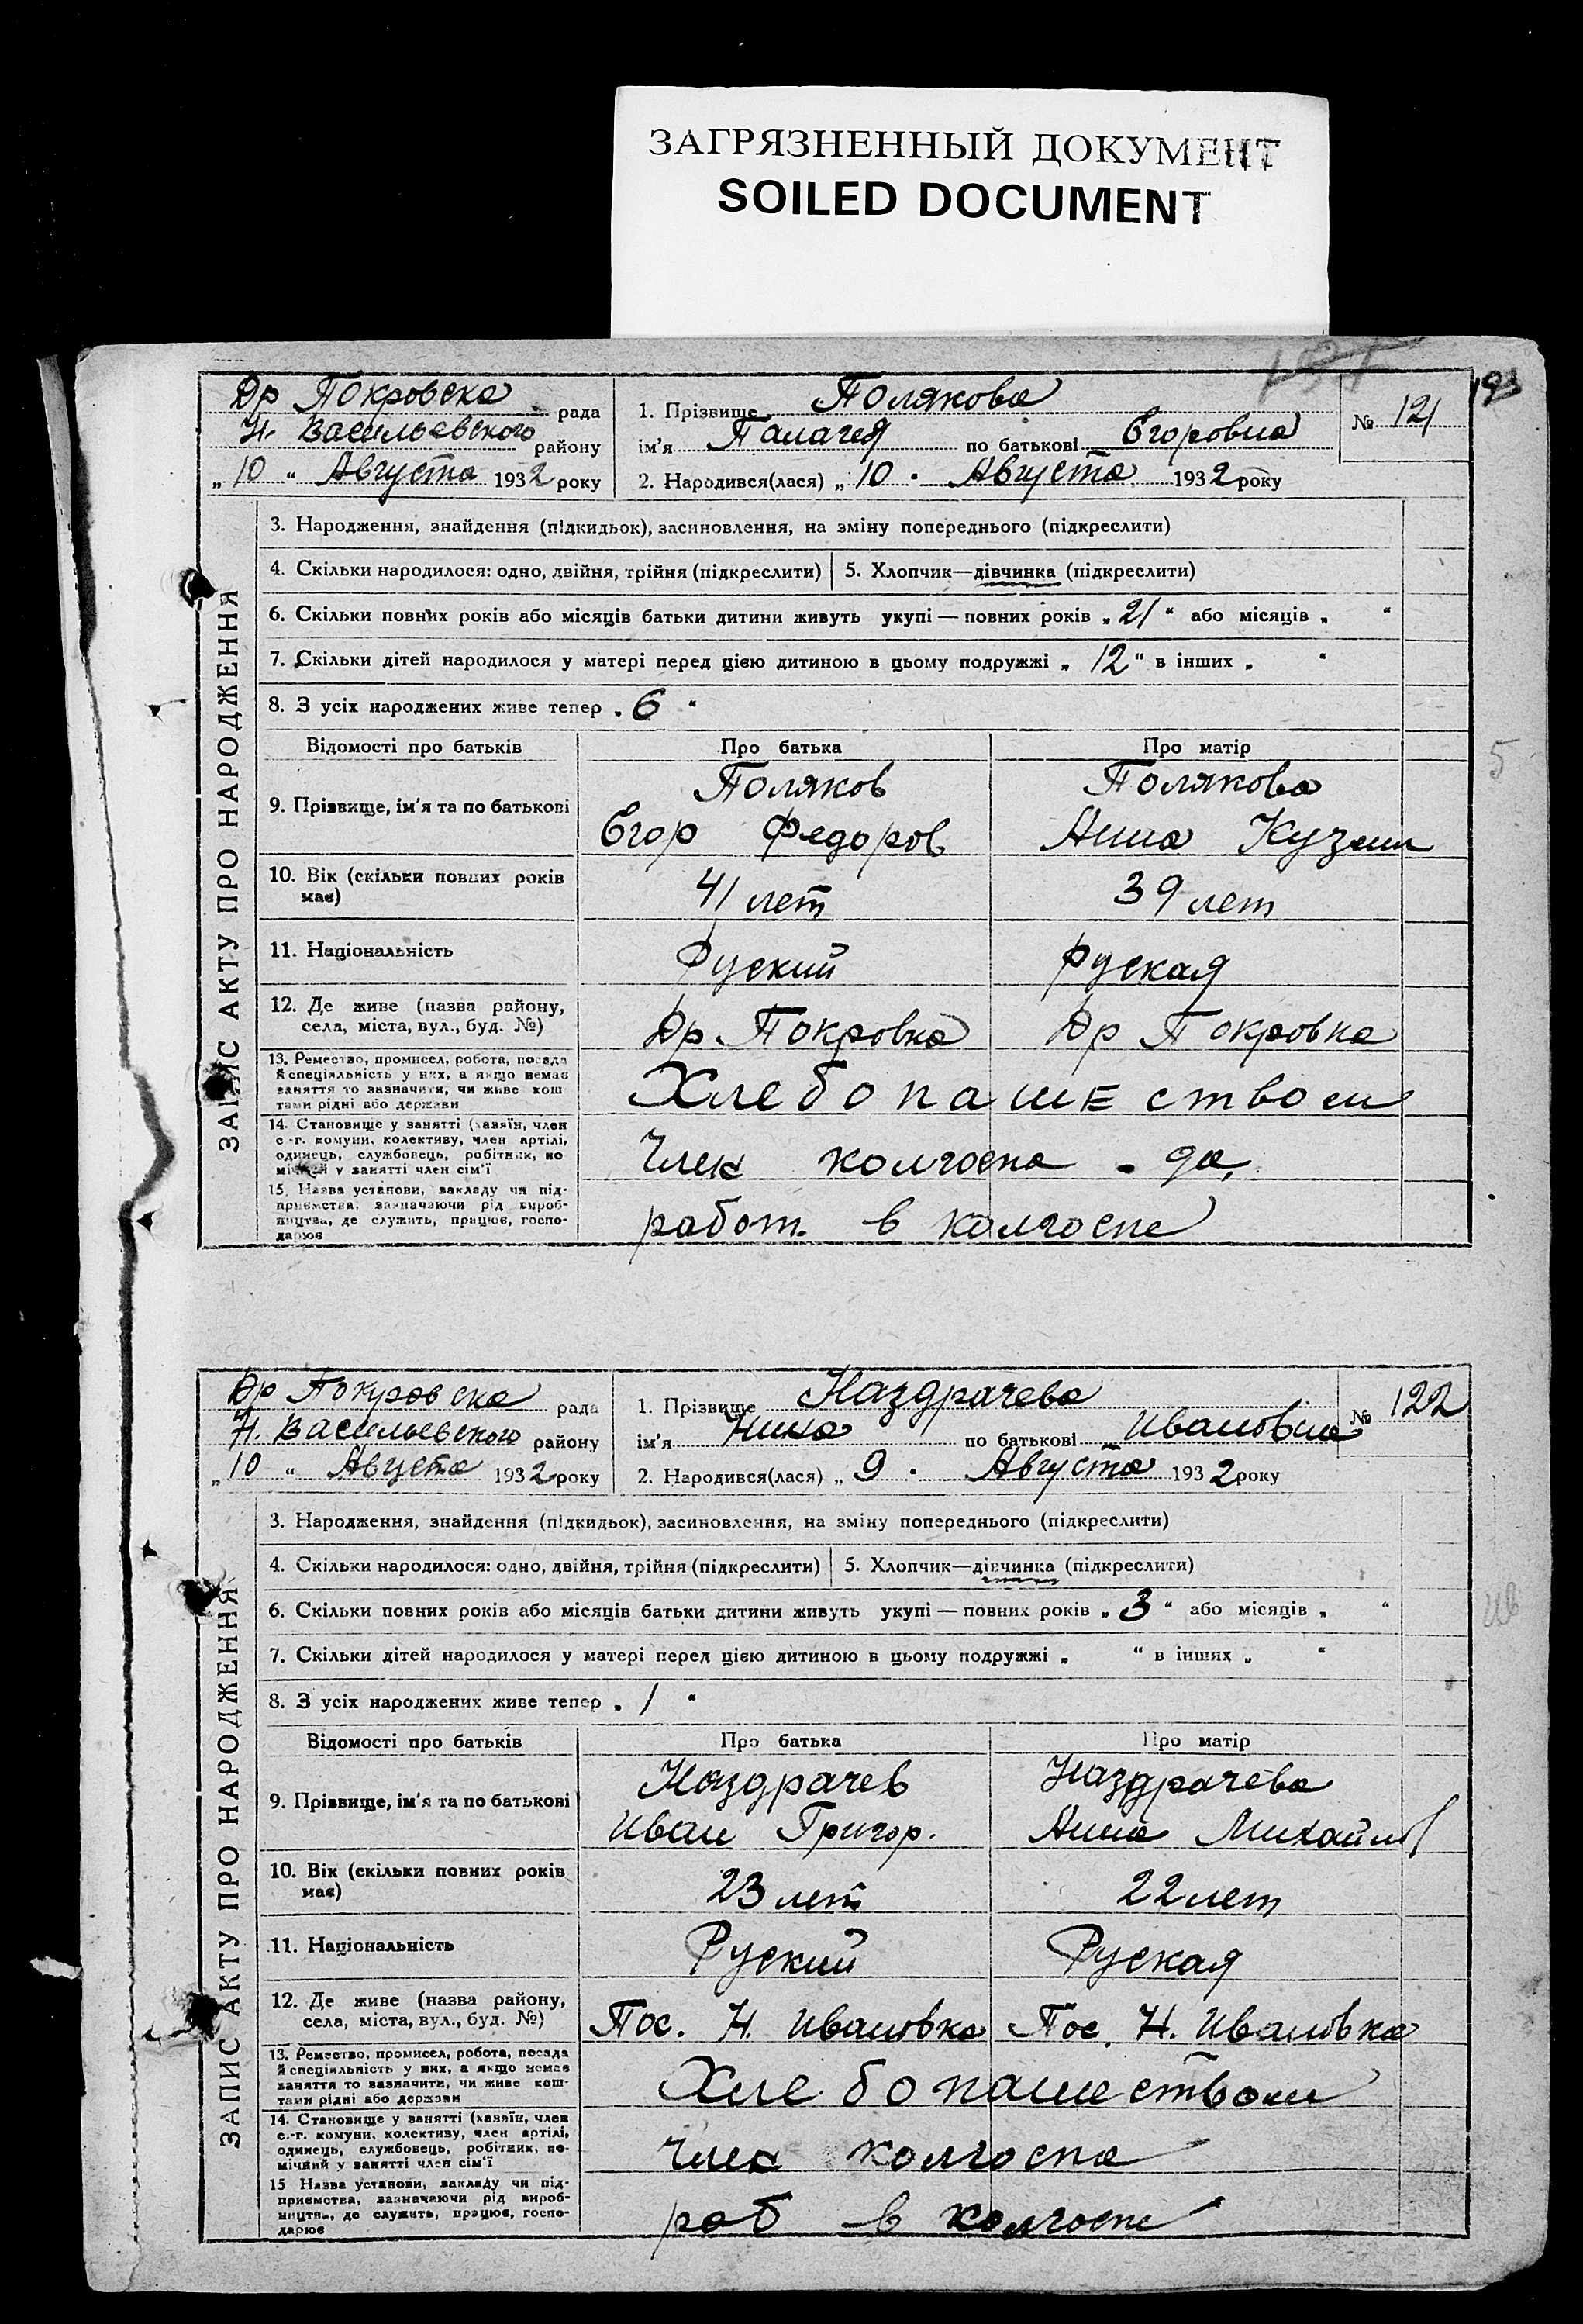 ЗАГРЯЗНЕННЫЙ ДОКУМЕНТ
SOILED DOCUMENT
193
Др Покровска рада
Н. Васильевского району
„ 10 “ Августа 1932 року
1. Прізвище Полякова
ім'я Палагея по батькові Егоровна
2. Народився(лася) „ 10 · Августа 1932 року
№ 121
ЗАПИС АКТУ ПРО НАРОДЖЕННЯ
3. Народження, знайдення (підкидьок), засиновлення, на зміну попереднього (підкреслити)
4. Скільки народилося: одно, двійня, трійня (підкреслити) 5. Хлопчик—дівчинка (підкреслити)
6. Скільки повних років або місяців батьки дитини живуть укупі — повних років „ 21 “ або місяців „ “
7. Скільки дітей народилося у матері перед цією дитиною в цьому подружжі „ 12 “ в інших „ “
8. З усіх народжених живе тепер „ 6 “
Відомості про батьків Про батька Про матір
9. Прізвище, ім'я та по батькові
Поляков Полякова
Егор Федоров Анна Кузьми
10. Вік (скільки повних років має) 41 лет 39 лет
11. Національність Руский руская
12. Де живе (назва району, села, міста, вул., буд. №) Др. Покровка Др Покровка
13. Ремество, промисел, робота, посада
й спеціяльність у них, а якщо немає
заняття то зазначити, чи живе кош-
тами рідні або держави
Хлебопашеством
14. Становище у занятті (хазяїн, член
с.-г. комуни, колективу, член артілі,
одинець, службовець, робітник, по-
мічний у занятті член сім'ї
Член колгоспа - да.
15. Назва установи, закладу чи під-
приємства, зазначаючи рід вироб-
ництва, де служить, працює, госпо-
дарює
работ. в колгоспе
5
Др Покровска рада
Н. Васильевского району
„ 10 “ Августа 1932 року
1. Прізвище Наздрачева
ім'я Нина по батькові Ивановна
2. Народився(лася) „ 9 · Августа 1932 року
№ 122
ЗАПИС АКТУ ПРО НАРОДЖЕННЯ
3. Народження, знайдення (підкидьок), засиновлення, на зміну попереднього (підкреслити)
4. Скільки народилося: одно, двійня, трійня (підкреслити) 5. Хлопчик—дівчинка (підкреслити)
6. Скільки повних років або місяців батьки дитини живуть укупі — повних років „ 3 “ або місяців „ “
7. Скільки дітей народилося у матері перед цією дитиною в цьому подружжі „ “ в інших „ “
8. З усіх народжених живе тепер „ 1 “
Відомості про батьків Про батька Про матір
9. Прізвище, ім'я та по батькові
Наздрачев Наздрачева
Иван Григор. Анна Михайлов
10. Вік (скільки повних років має) 23 лет 22 лет
11. Національність Руский Руская
12. Де живе (назва району, села, міста, вул., буд. №) Пос. Н. Ивановка Пос. Н. Ивановка
13. Ремество, промисел, робота, посада
й спеціяльність у них, а якщо немає
заняття то зазначити, чи живе кош-
тами рідні або держави
Хлебопашеством
14. Становище у занятті (хазяїн, член
с.-г. комуни, колективу, член артілі,
одинець, службовець, робітник, по-
мічний у занятті член сім'ї
член колгоспа
15 Назва установи, закладу чи під-
приємства, зазначаючи рід вироб-
ництва, де служить, працює, госпо-
дарює
раб в колгоспе